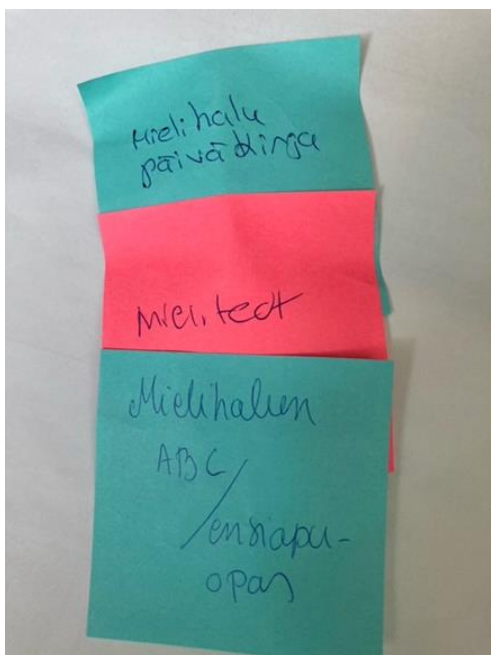 Mielihalu
päiväkirja
Mieliteot
Mielihalujen
ABC/
ensiapu-
opas